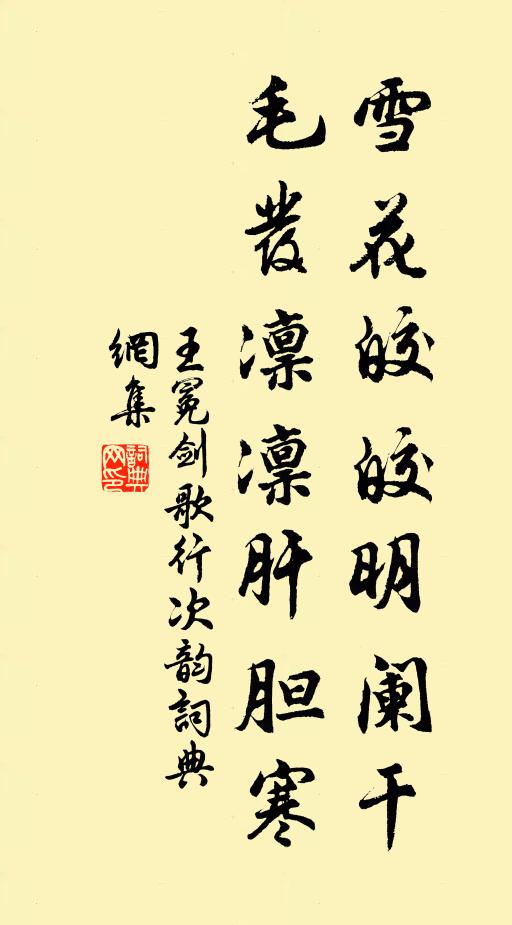 雪花皎皎明阑干
毛发凛凛肝胆寒
王冕剑歌行次韵詞典
網集
詞典网印